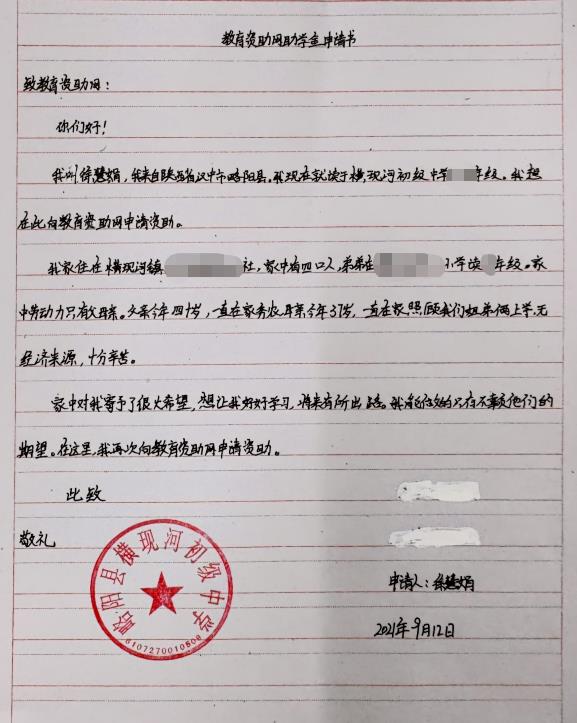 教育资助网助学金申请书
致教育资助网：
你们好！
我叫徐慧娟，我来自陕西省汉中市略阳县。我现在就读于横现河初级中学年级。我想
在此向教育资助网申请资助。
我家住在横现河镇社，家中有四口人，弟弟在小学读年级。家
中劳动力只有父亲。父亲今年四十岁，一直在家务农，母亲今年37岁，一直在家照顾我们姐弟俩上学，无
经济来源，十分辛苦。
家中对我寄予了很大希望，想让我好好学习，将来有所出路。我所能做的只有不辜负他们的
期望。在这里，我再次向教育资助网申请资助。
此致
敬礼
略阳县横现河初级中学
6107270010508
申请人：徐慧娟
2021年9月12日